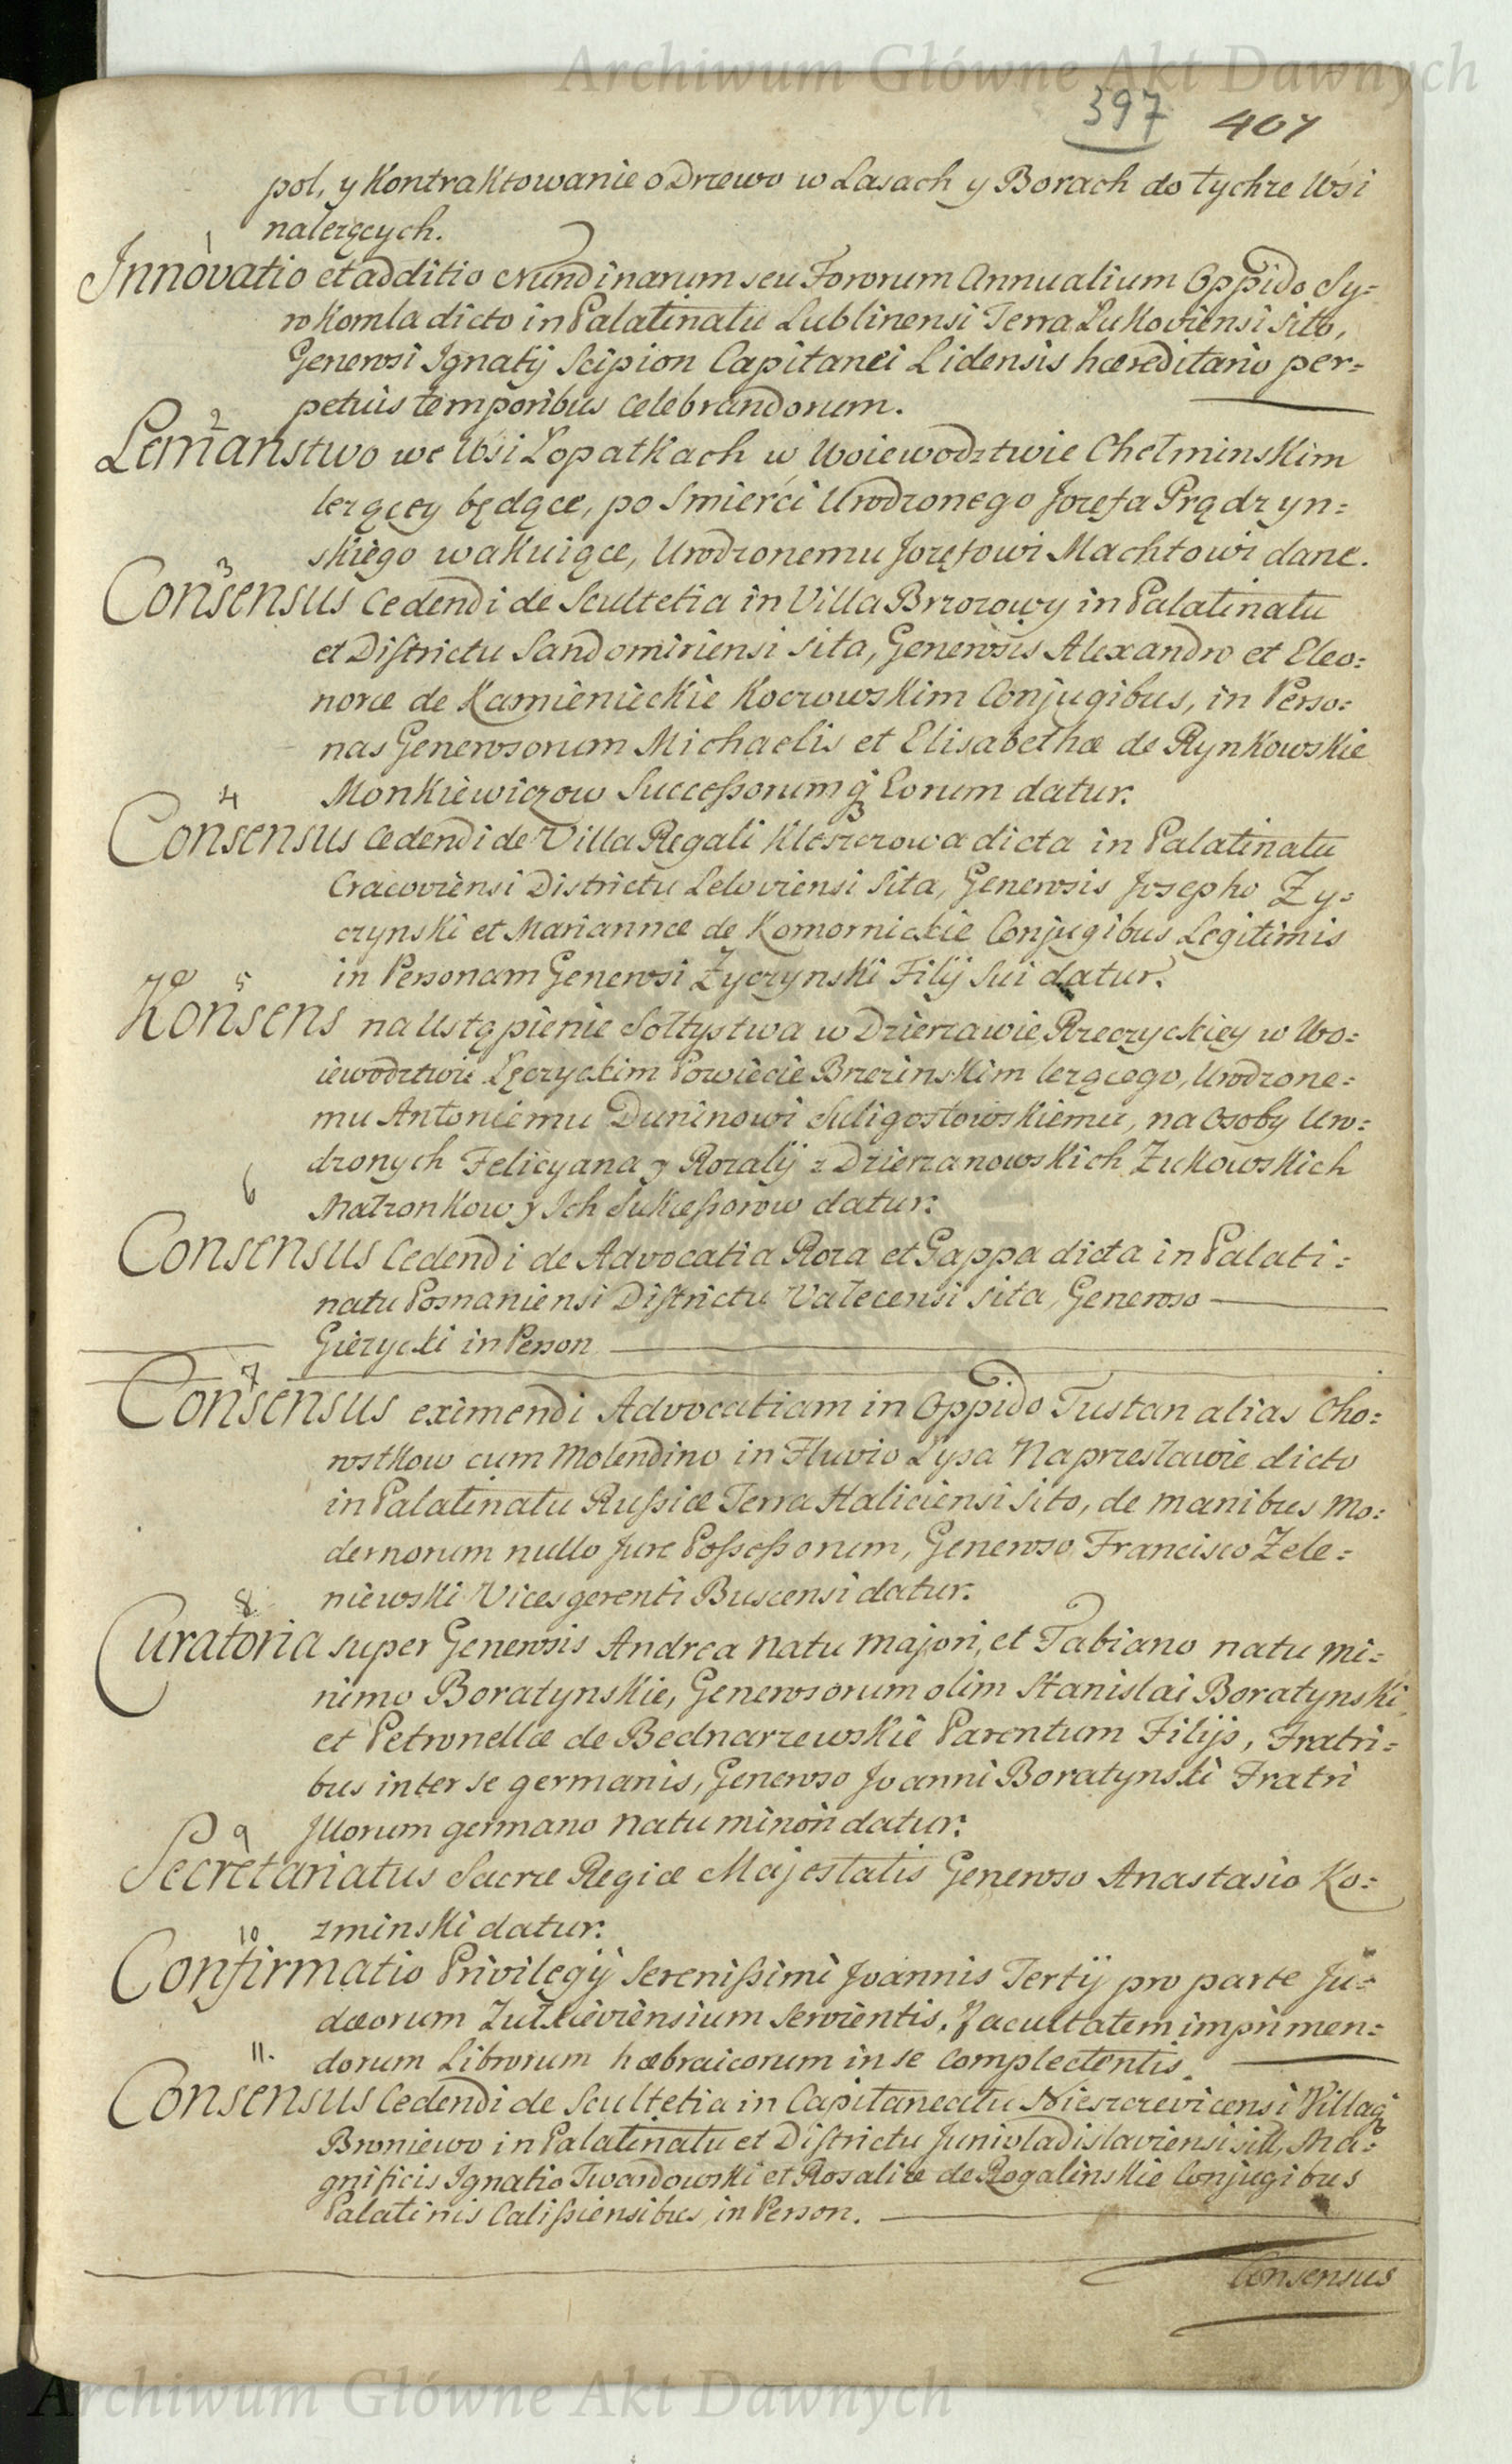 Archiwum Główne Akt Dawnych
397 407
pol, y Kontraktowanie o Drzewo w Lasach y Borach do tychze Wsi
nalezących.
1
Innovatio et additio Nundinarum seu Fororum Annualium Oppido Sy=
rokomla dicto in Palatinatu Lublinensi Terra Lukoviensi sito,
Generosi Ignatij Scipion Capitanei Lidensis hæreditario per=
petuis temporibus celebrandorum.
2
Lemanstwo we Wsi Łopatkach w Woiewodztwie Chełminskim
lezącey będące, po Smierći Urodzonego Jozefa Prądzyn=
skiego wakuiące, Urodzonemu Jozefowi Machtowi dane.
3
Consensus cedendi de Scultetia in Villa Brzozowy in Palatinatu
et Districtu Sandomiriensi sita, Generosis Alexandro et Eleo=
noræ de Kamienieckie Koczowskim Conjugibus, in Perso=
nas Generosorum Michaelis et Elisabethæ de Rynkowskie
Monkiewiczow Successorumq̃ Eorum datur.
4
Consensus cedendi de Villa Regali Kleszczowa dicta in Palatinatu
Cracoviensi Districtu Leloviensi sita, Generosis Josepho Zy=
czynski et Mariannæ de Komornickie Conjugibus Legitimis
in Personam Generosi Zyczynski Filij sui datur.
5
Konsens na Ustąpienie Sołtystwa w Dzierzawie Rzeczyckiey w Wo=
iewodztwie Łęczyckim Powiecie Brzezinskim lezącego, Urodzone=
mu Antoniemu Duninowi Suligostowskiemu, na Osoby Uro=
dzonych Felicyana y Rozalij z Dzierzanowskich Zukowskich
Małzonkow y Ich Sukcessorow datur.
6
Consensus cedendi de Advocatia Roza et Gappa dicta in Palati=
natu Posnaniensi Districtu Valecensi sita, Generoso
Gizycki in Person
7
Consensus eximendi Advocatiam in Oppido Tustan alias Cho=
rostkow cum Molendino in Fluvio Lypa Naprzestawie dicto
in Palatinatu Russiæ Terra Haliciensi sito, de manibus Mo=
dernorum nullo Jure Possessorum, Generoso Francisco Zele=
niewski Vicesgerenti Buscensi datur.
8
Curatoria super Generosis Andrea natu majori, et Fabiano natu mi=
nimo Boratynskie, Generosorum olim Stanislai Boratynski
et Petronellæ de Bednarzewskie Parentum Filijs, Fratri=
bus inter se germanis, Generoso Joanni Boratynski Fratri
Illorum germano natu minori datur.
9
Secretariatus Sacræ Regiæ Majestatis Generoso Anastasio Ko=
zminski datur.
10
Confirmatio Privilegij Serenissimi Joannis Tertij pro parte Ju=
dæorum Zulkieviensium servientis, facultatem imprimen=
dorum Librorum hæbraicorum in se complectentis.
11.
Consensus cedendi de Scultetia in Capitaneatu Nieszczevicensi Villaq̃
Broniewo in Palatinatu et Districtu Junivladislaviensi sit, Ma=
gnificis Ignatio Twardowski et Rosaliæ de Rogalinskie Conjugibus
Palatinis Calissiensibus, in Person.
Consensus
Archiwum Główne Akt Dawnych